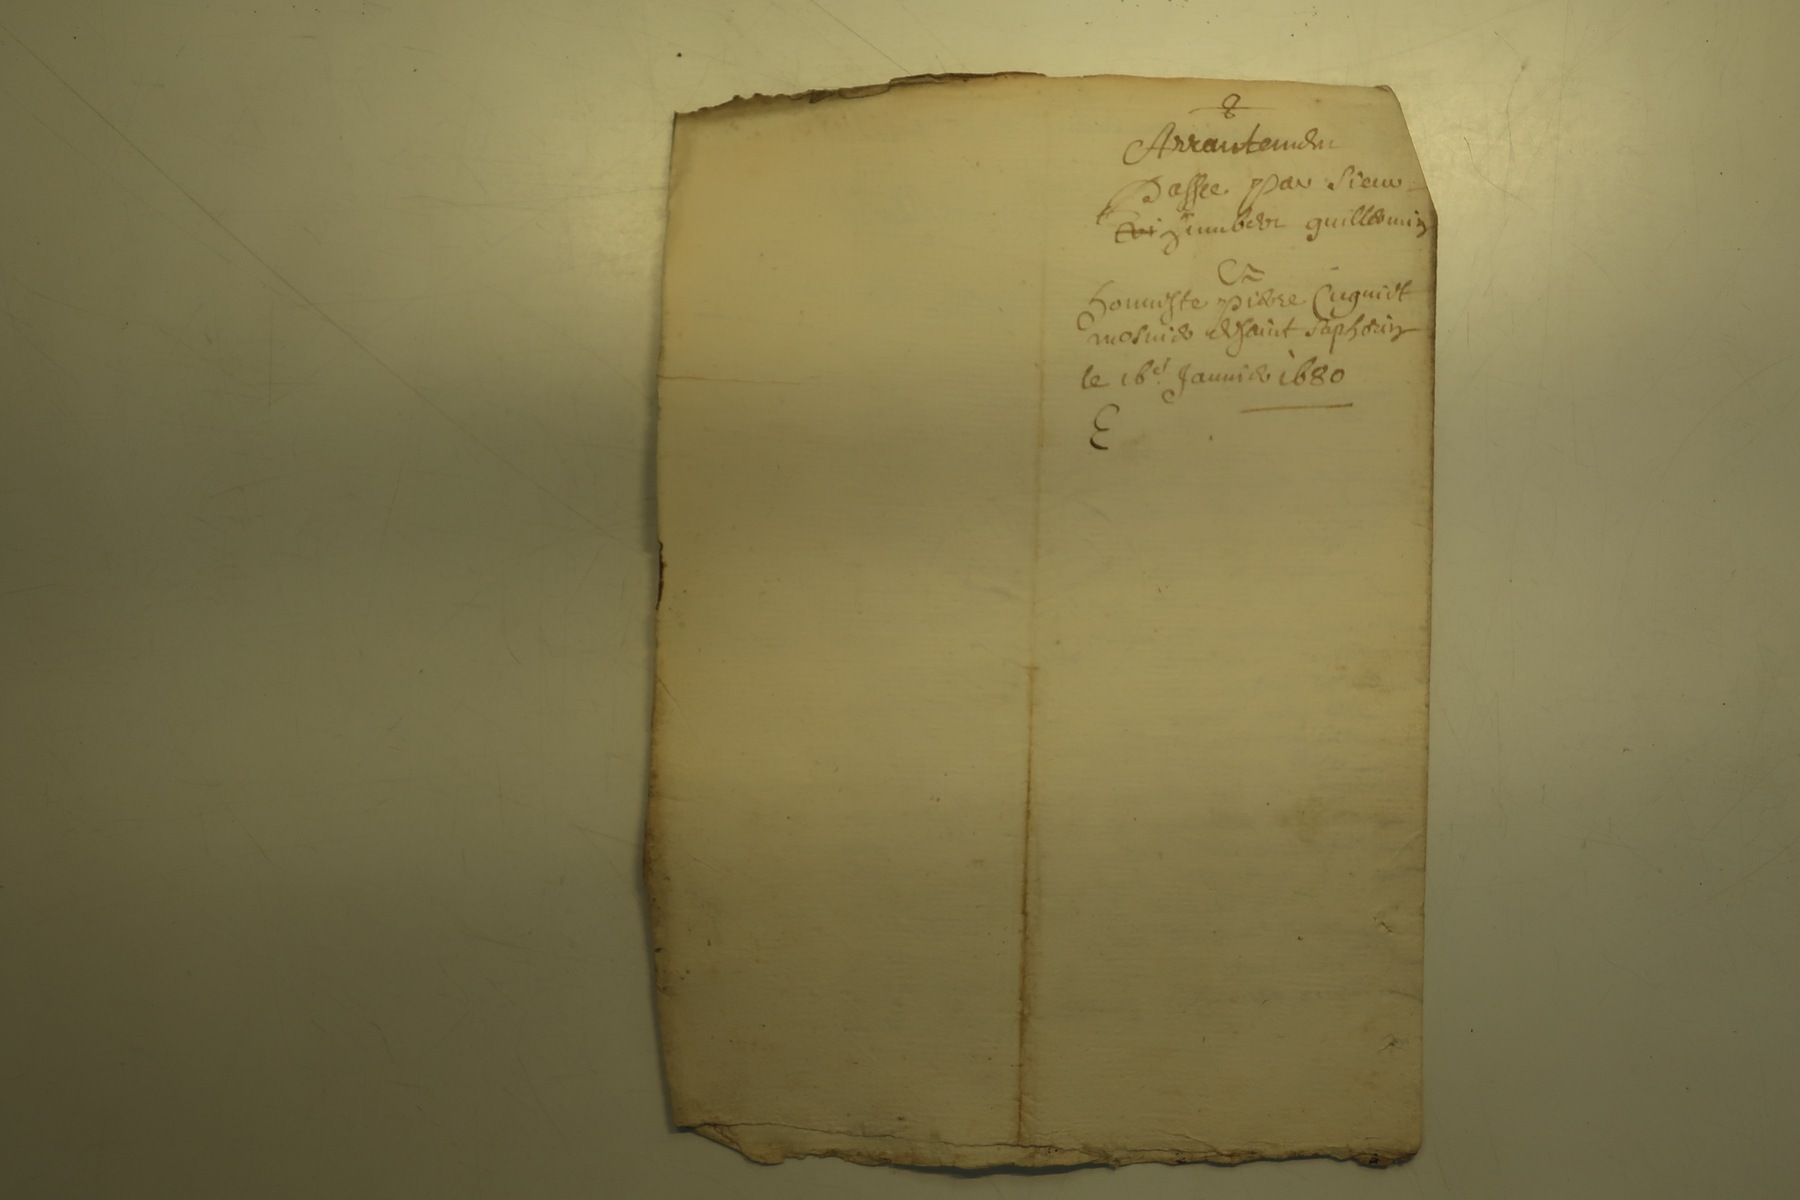 8
Arrantemen
Passee par Sieur
Himber guillermin
Et
honneste pierre Cugniet
mosnier de saint saphorin
le 16e Janvier 1680
E